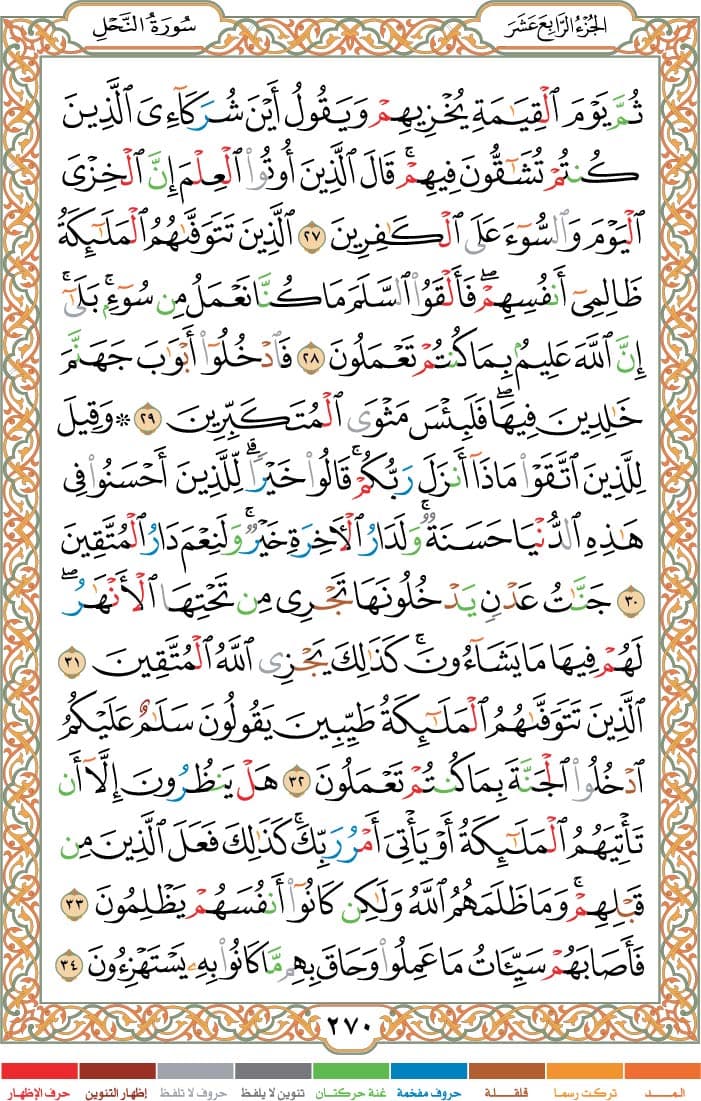 الجزء الرابع عشر
سورة النحل
ثُمَّ يَوْمَ ٱلْقِيَـٰمَةِ يُخْزِيهِمْ وَيَقُولُ أَيْنَ شُرَكَآءِىَ ٱلَّذِينَ
كُنتُمْ تُشَـٰٓقُّونَ فِيهِمْ ۚ قَالَ ٱلَّذِينَ أُوتُوا۟ ٱلْعِلْمَ إِنَّ ٱلْخِزْىَ
ٱلْيَوْمَ وَٱلسُّوٓءَ عَلَى ٱلْكَـٰفِرِينَ ٢٧ ٱلَّذِينَ تَتَوَفَّىٰهُمُ ٱلْمَلَـٰٓئِكَةُ
ظَالِمِىٓ أَنفُسِهِمْ ۖ فَأَلْقَوُا۟ ٱلسَّلَمَ مَا كُنَّا نَعْمَلُ مِن سُوٓءٍۭ ۚ بَلَىٰٓ
إِنَّ ٱللَّهَ عَلِيمٌۢ بِمَا كُنتُمْ تَعْمَلُونَ ٢٨ فَٱدْخُلُوٓا۟ أَبْوَٰبَ جَهَنَّمَ
خَـٰلِدِينَ فِيهَا ۖ فَلَبِئْسَ مَثْوَى ٱلْمُتَكَبِّرِينَ ٢٩ ۞ وَقِيلَ
لِلَّذِينَ ٱتَّقَوْا۟ مَاذَآ أَنزَلَ رَبُّكُمْ ۚ قَالُوا۟ خَيْرًا ۗ لِّلَّذِينَ أَحْسَنُوا۟ فِى
هَـٰذِهِ ٱلدُّنْيَا حَسَنَةٌ ۚ وَلَدَارُ ٱلْـَٔاخِرَةِ خَيْرٌ ۚ وَلَنِعْمَ دَارُ ٱلْمُتَّقِينَ
٣٠ جَنَّـٰتُ عَدْنٍ يَدْخُلُونَهَا تَجْرِى مِن تَحْتِهَا ٱلْأَنْهَـٰرُ ۖ
لَهُمْ فِيهَا مَا يَشَآءُونَ ۚ كَذَٰلِكَ يَجْزِى ٱللَّهُ ٱلْمُتَّقِينَ ٣١
ٱلَّذِينَ تَتَوَفَّىٰهُمُ ٱلْمَلَـٰٓئِكَةُ طَيِّبِينَ ۙ يَقُولُونَ سَلَـٰمٌ عَلَيْكُمُ
ٱدْخُلُوا۟ ٱلْجَنَّةَ بِمَا كُنتُمْ تَعْمَلُونَ ٣٢ هَلْ يَنظُرُونَ إِلَّآ أَن
تَأْتِيَهُمُ ٱلْمَلَـٰٓئِكَةُ أَوْ يَأْتِىَ أَمْرُ رَبِّكَ ۚ كَذَٰلِكَ فَعَلَ ٱلَّذِينَ مِن
قَبْلِهِمْ ۚ وَمَا ظَلَمَهُمُ ٱللَّهُ وَلَـٰكِن كَانُوٓا۟ أَنفُسَهُمْ يَظْلِمُونَ ٣٣
فَأَصَابَهُمْ سَيِّـَٔاتُ مَا عَمِلُوا۟ وَحَاقَ بِهِم مَّا كَانُوا۟ بِهِۦ يَسْتَهْزِءُونَ ٣٤
٢٧٠
المــد تركت رسما قلقلة حروف مفخمة غنة حركتان تنوين لا يلفظ حروف لا تلفظ إظهار التنوين حرف الإظهار